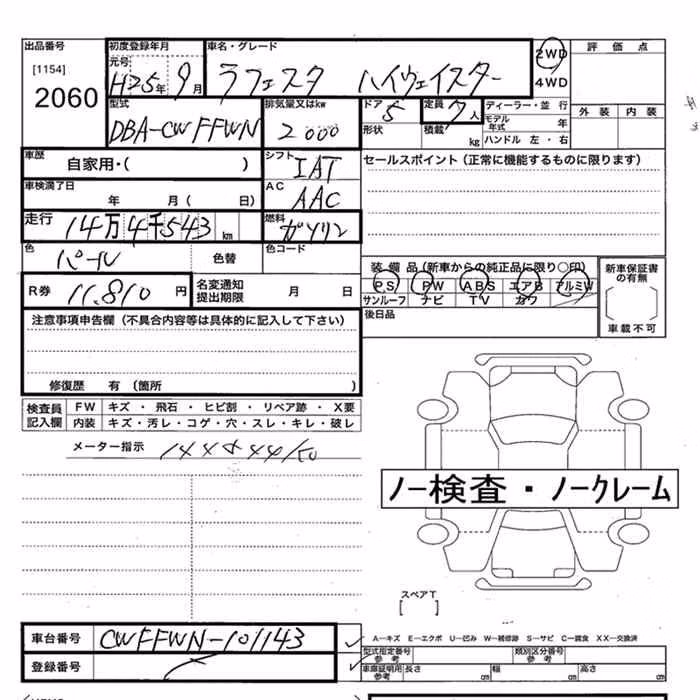 出品番号 初度登録年月 車名・グレード 2WD 評価点
[1154] 元号
2060 H25年9月 ラフェスタ ハイウェイスター 4WD
型式 排気量又はkw ドア 5 定員 7人 ディーラー・並行 外装 内装
DBA-CWFFWN 2000 形状 積載 kg モデル年式 年
ハンドル 左・右
車歴 自家用・( ) シフト IAT セールスポイント(正常に機能するものに限ります)
車検満了日 年 月( 日) AC AAC
走行 14万4千543km 燃料 ガソリン
色 パール 色替 色コード
装備品(新車からの純正品に限り〇印) 新車保証書の有無
R券 11,810円 名変通知提出期限 月 日 PS PW ABS エアB アルミW
サンルーフ ナビ TV カワ
注意事項申告欄(不具合内容等は具体的に記入して下さい) 後日品 車載不可
修復歴 有〔箇所 〕
検査員記入欄 FW キズ・飛石・ヒビ割・リペア跡・X要
内装 キズ・汚レ・コゲ・穴・スレ・キレ・破レ
メーター指示
ノー検査・ノークレーム
スペアT
[ ]
車台番号 CWFFWN-101143 A−キズ E−エクボ U−凹み W−補修跡 S−サビ C−腐食 XX−交換済
登録番号 型式指定番号 参考 類別区分番号 参考
車庫証明用 参考 長さ cm 幅 cm 高さ cm